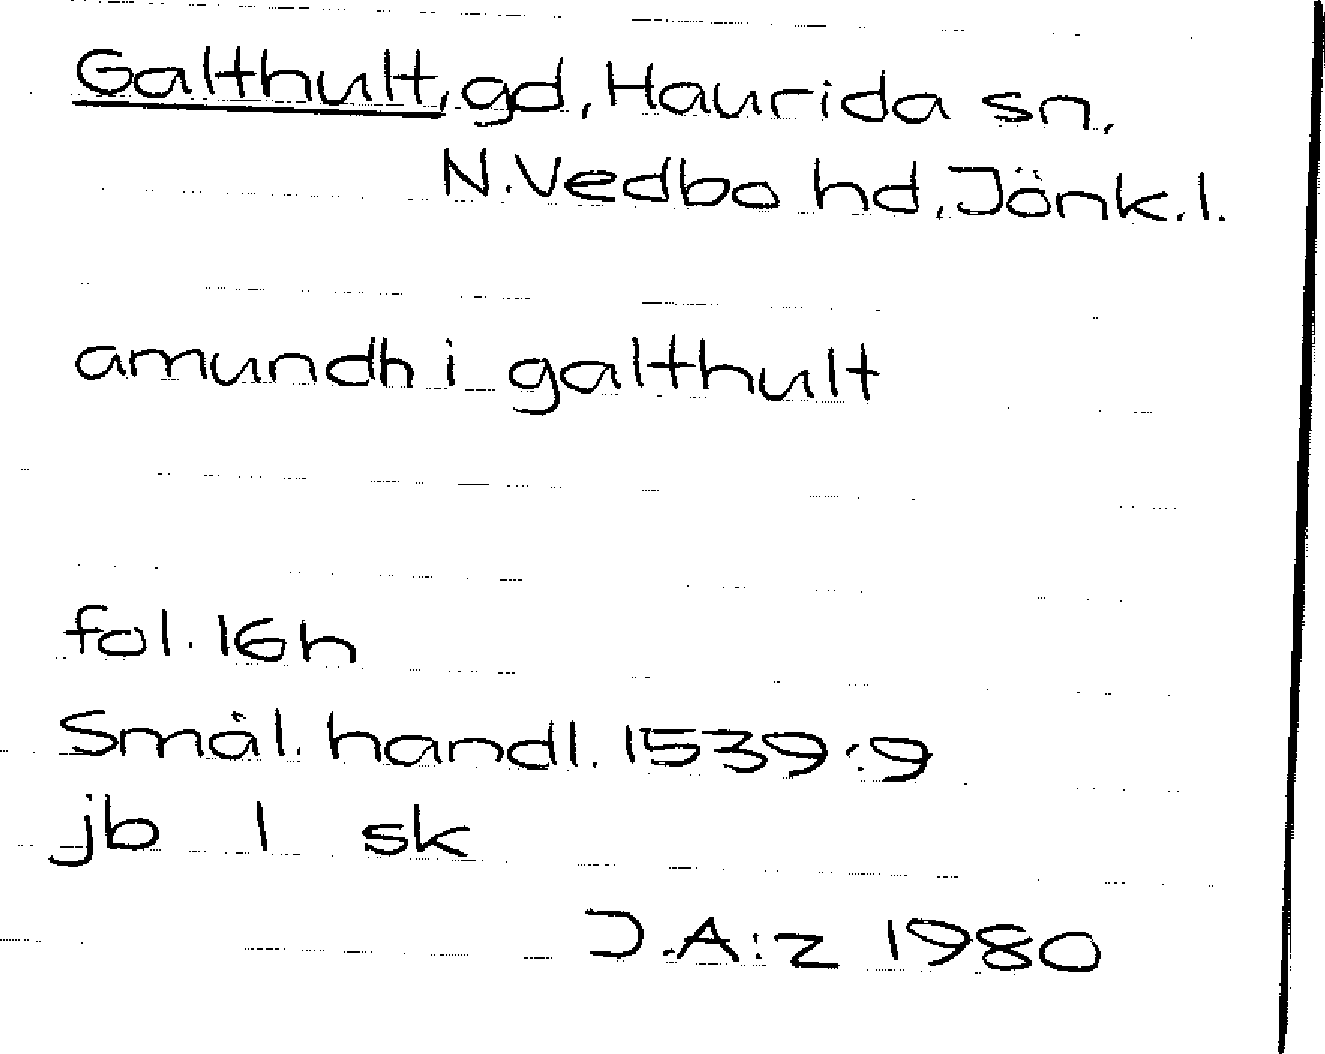 Galthult, gd, Haurida sn,
N.Vedbo hd, Jönk.l.
amundh i galthult
fol. 16h
Smål. handl. 1539:9
jb 1 sk
J.A:z 1980